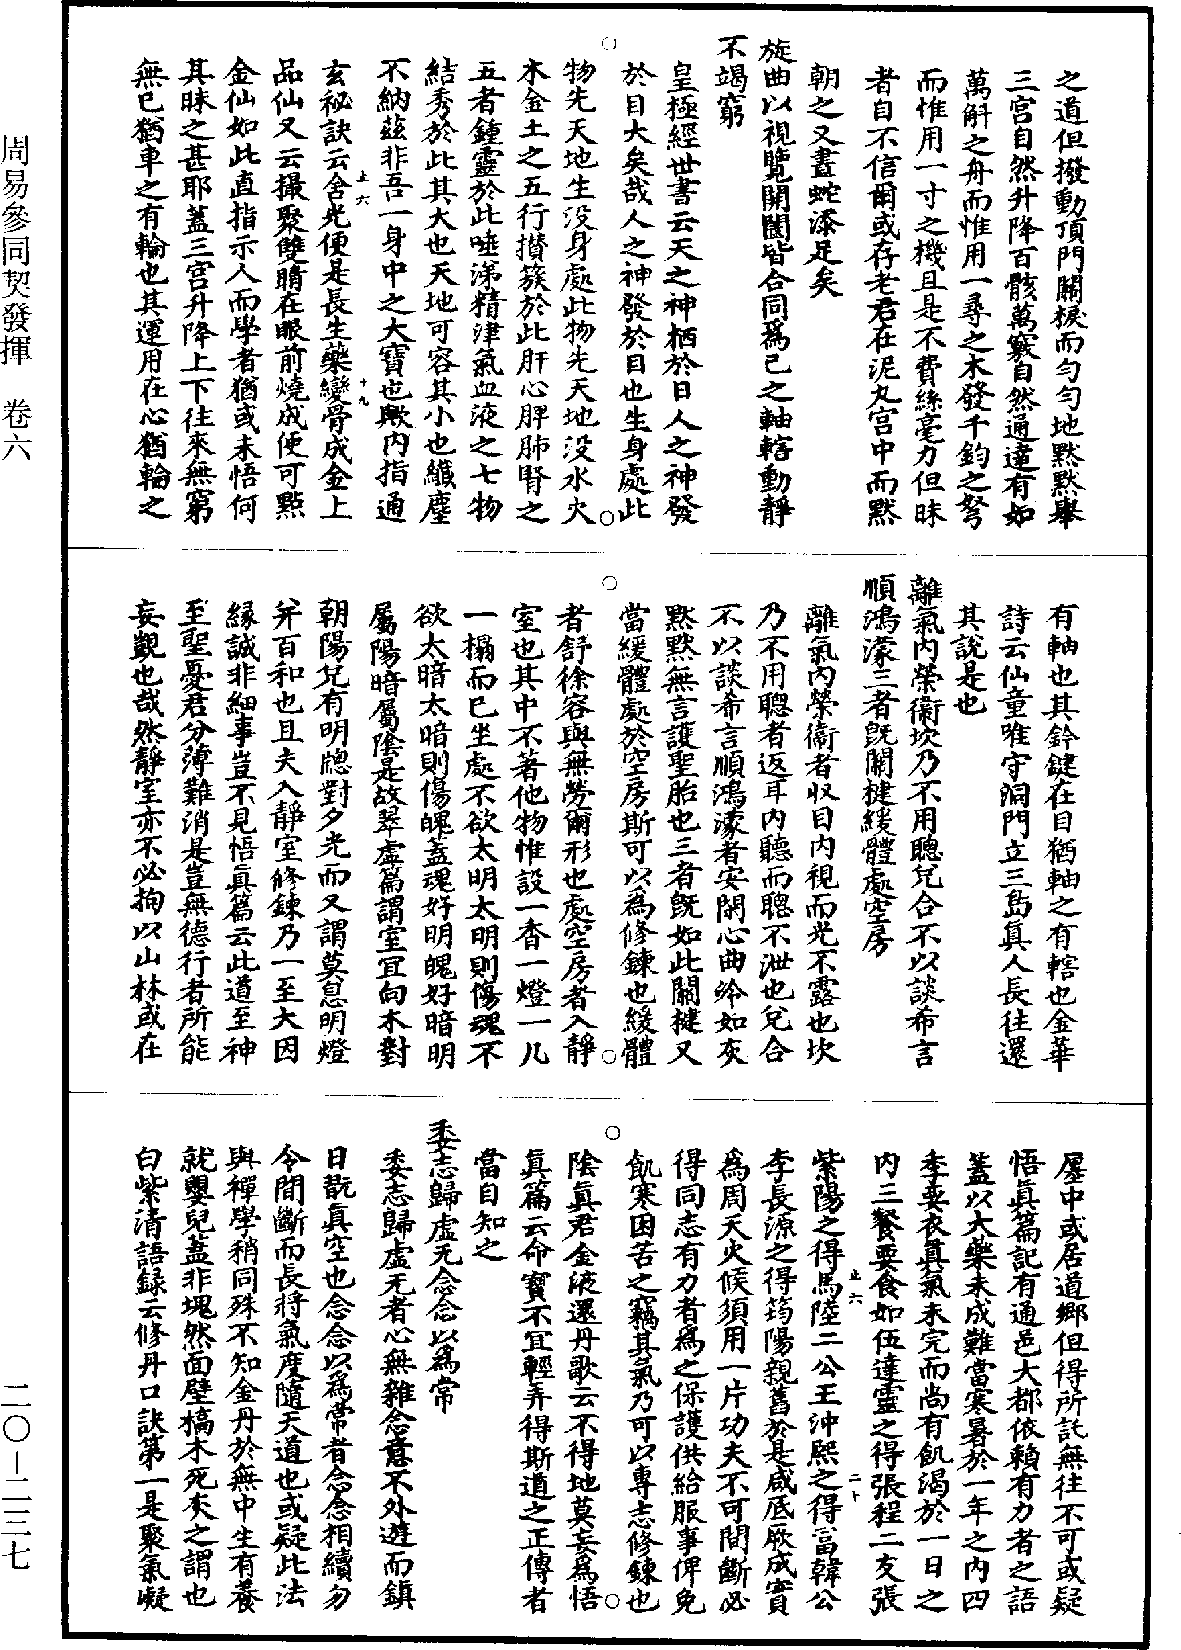 周易參同契發揮　卷六
之道但撥動頂門關棙而勻勻地默默舉
三宮自然升降百骸萬竅自然通達有如
萬斛之舟而惟用一尋之木發千鈞之弩
而惟用一寸之機且是不費絲毫力但昧
者自不信爾或存老君在泥丸宮中而默
朝之又畫蛇添足矣
旋曲以視覽開闔皆合同爲己之軸轄動靜
不竭窮
皇極經世書云天之神栖於日人之神發
於目大矣哉人之神發於目也生身處此
物先天地生没身處此物先天地没水火
木金土之五行攅簇於此肝心脾肺腎之
五者鍾靈於此唾涕精津氣血液之七物
結秀於此其大也天地可容其小也纎塵
不納兹非吾一身中之大寶也歟内指通
玄秘訣云含光便是長生藥變骨成金上
品仙又云撮聚雙睛在眼前燒成便可點
金仙如此直指示人而學者猶或未悟何
其昧之甚耶蓋三宮升降上下往來無窮
無已猶車之有輪也其運用在心猶輪之
止六
十九
有軸也其鈐鍵在目猶軸之有轄也金華
詩云仙童唯守洞門立三島真人長往還
其說是也
離氣内榮衞坎乃不用聰兌合不以談希言
順鴻濛三者旣關揵緩體處空房
離氣内榮衞者収目内視而光不露也坎
乃不用聰者返耳内聽而聰不泄也兌合
不以談希言順鴻濛者安閑心曲紾如灰
默默無言護聖胎也三者旣如此關揵又
當緩體處於空房斯可以為修鍊也緩體
者舒徐容與無勞爾形也處空房者入靜
室也其中不著他物惟設一香一燈一几
一榻而已坐處不欲太明太明則傷魂不
欲太暗太暗則傷魄蓋魂好明魄好暗明
屬陽暗屬陰是故翠虛篇謂室宜向木對
朝陽兌有明牕對夕光而又謂莫息明燈
并百和也且夫入靜室修鍊乃一至大因
縁誠非細事豈不見悟真篇云此道至神
至聖憂君分薄難消是豈無德行者所能
妄覬也哉然靜室亦不必拘以山林或在
廛中或居道鄉但得所託無往不可或疑
悟眞篇記有通邑大都依賴有力者之語
蓋以大藥未成難當寒暑於一年之内四
季要衣眞氣未完而尚有飢渴於一日之
内三餐要食如伍達靈之得張程二友張
紫陽之得馬陸二公王沖熙之得富韓公
李長源之得筠陽親舊於是咸底厥成實
為周天火候須用一片功夫不可間斷必
得同志有力者為之保護供給服事俾免
飢寒困苦之竊其氣乃可以專志修鍊也
陰眞君金液還丹歌云不得地莫妄為悟
眞篇云命寶不宜輕弄得斯道之正傳者
當自知之
止六
二十
委志歸虛无念念以為常
委志歸虛无者心無雜念意不外遊而鎮
日翫眞空也念念以為常者念念相續勿
令間斷而長將氣度隨天道也或疑此法
與禪學稍同殊不知金丹於無中生有養
就嬰兒蓋非塊然面壁槁木死灰之謂也
白紫清語録云修丹口訣第一是聚氣凝
二〇—二三七